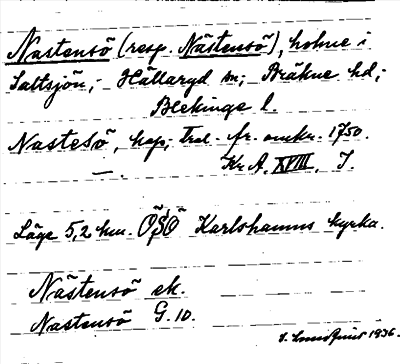 Nastensö (resp. Nästensö), holme i
Saltsjön,- Hällaryd sn; Bräkne hd;
Blekinge l.
Nastesö, hap; trol. fr. omkr. 1750.
—. Kr. A. XVIII. J.
Läge 5,2 km. ÖSÖ Karlshamns kyrka.
Nästensö ek.
Nastensö G. 10.
Lindqvist 1936.